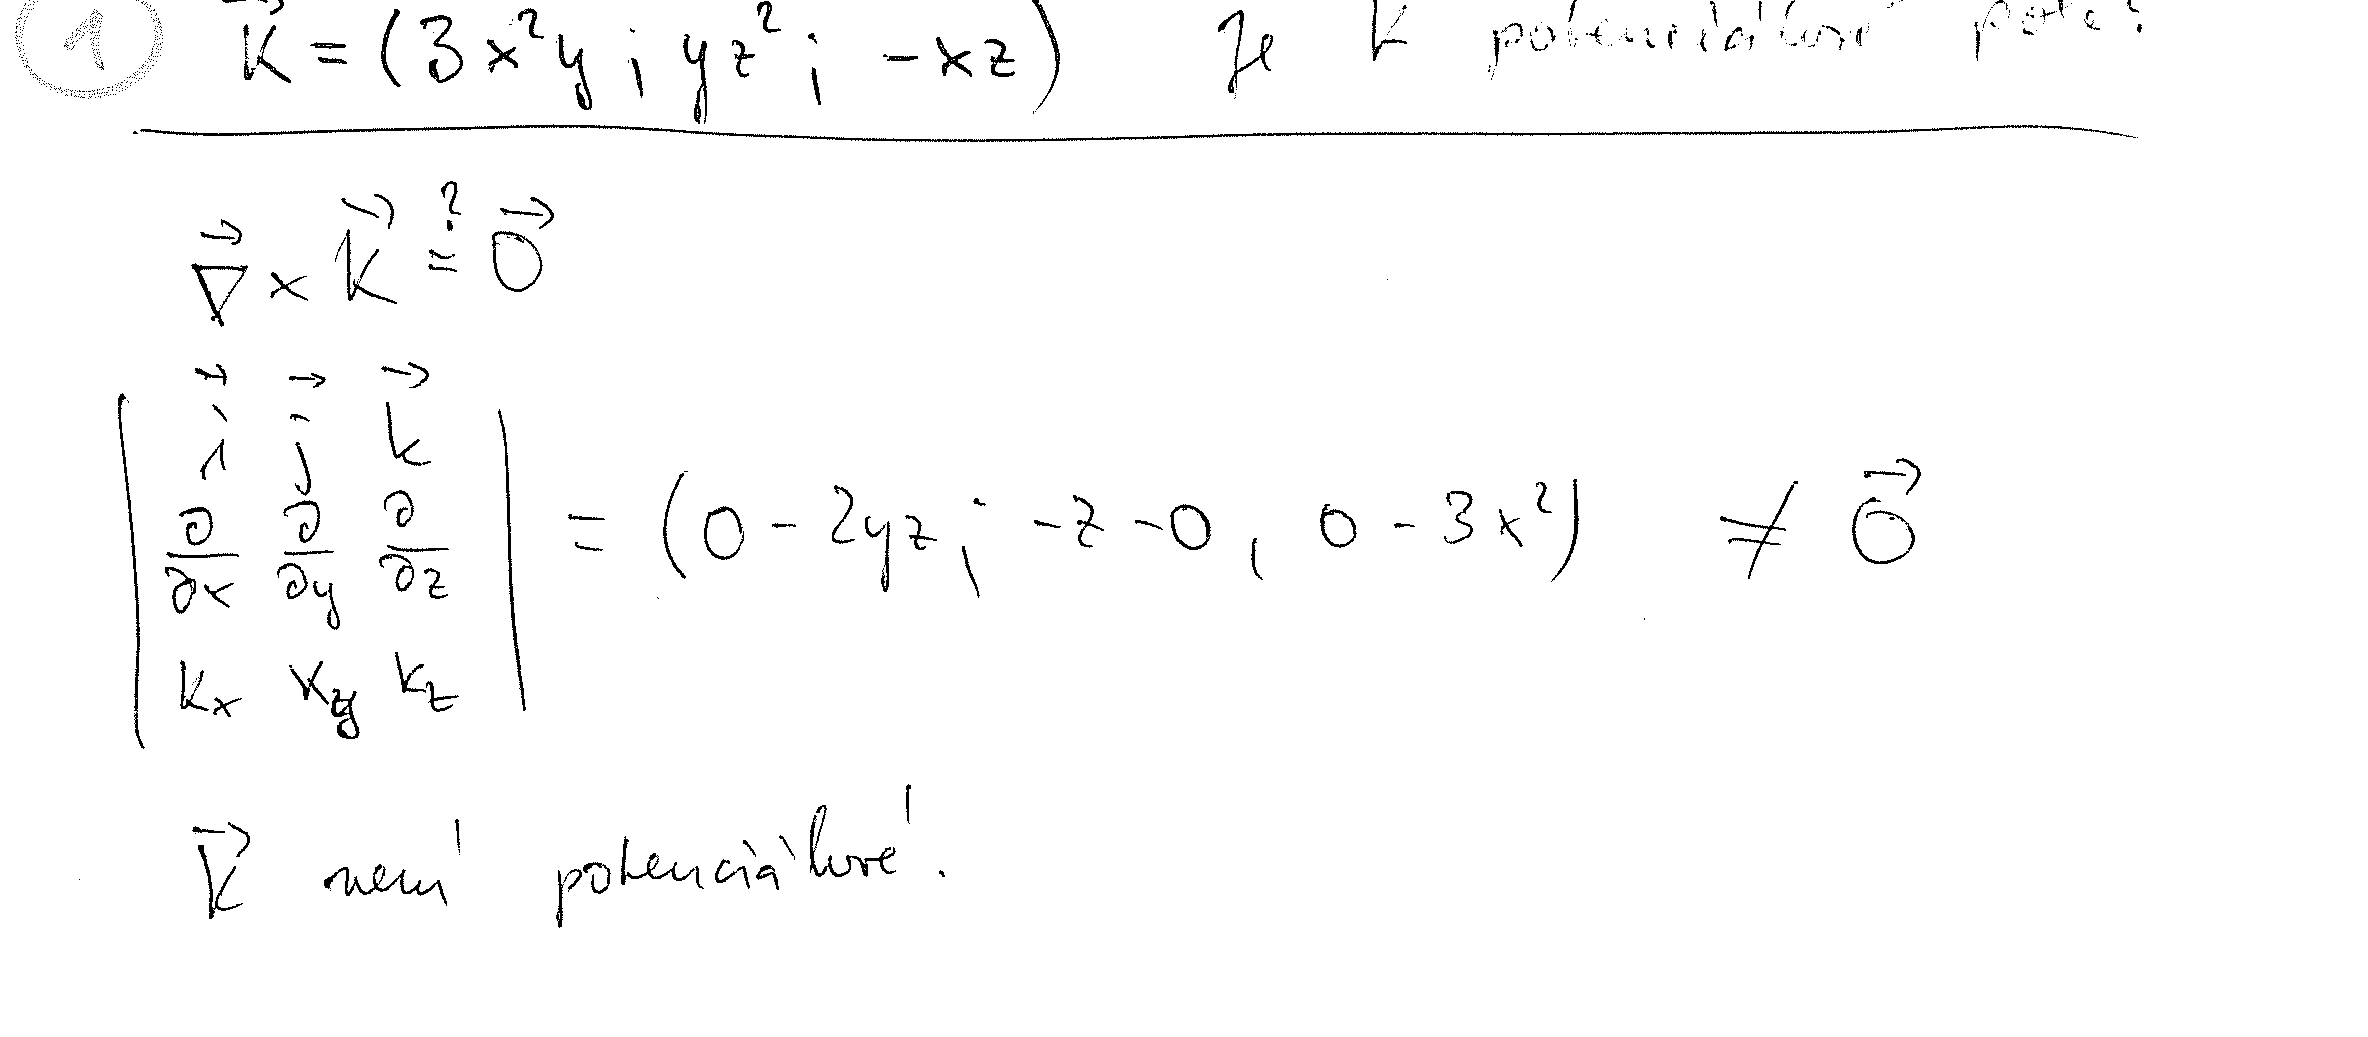 1 K⃗ = (3x²y ; yz² ; -xz) Je K potenciálové pole?
∇⃗ × K⃗ ≟ 0⃗
| i⃗ j⃗ k⃗ |
| ∂/∂x ∂/∂y ∂/∂z | = (0 - 2yz ; -z - 0 , 0 - 3x²) ≠ 0⃗
| Kx Ky Kz |
K⃗ není potenciálové.